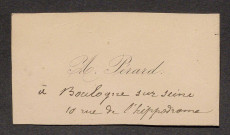 M. Pérard
à Boulogne sur seine
10 rue de l'hippodrome